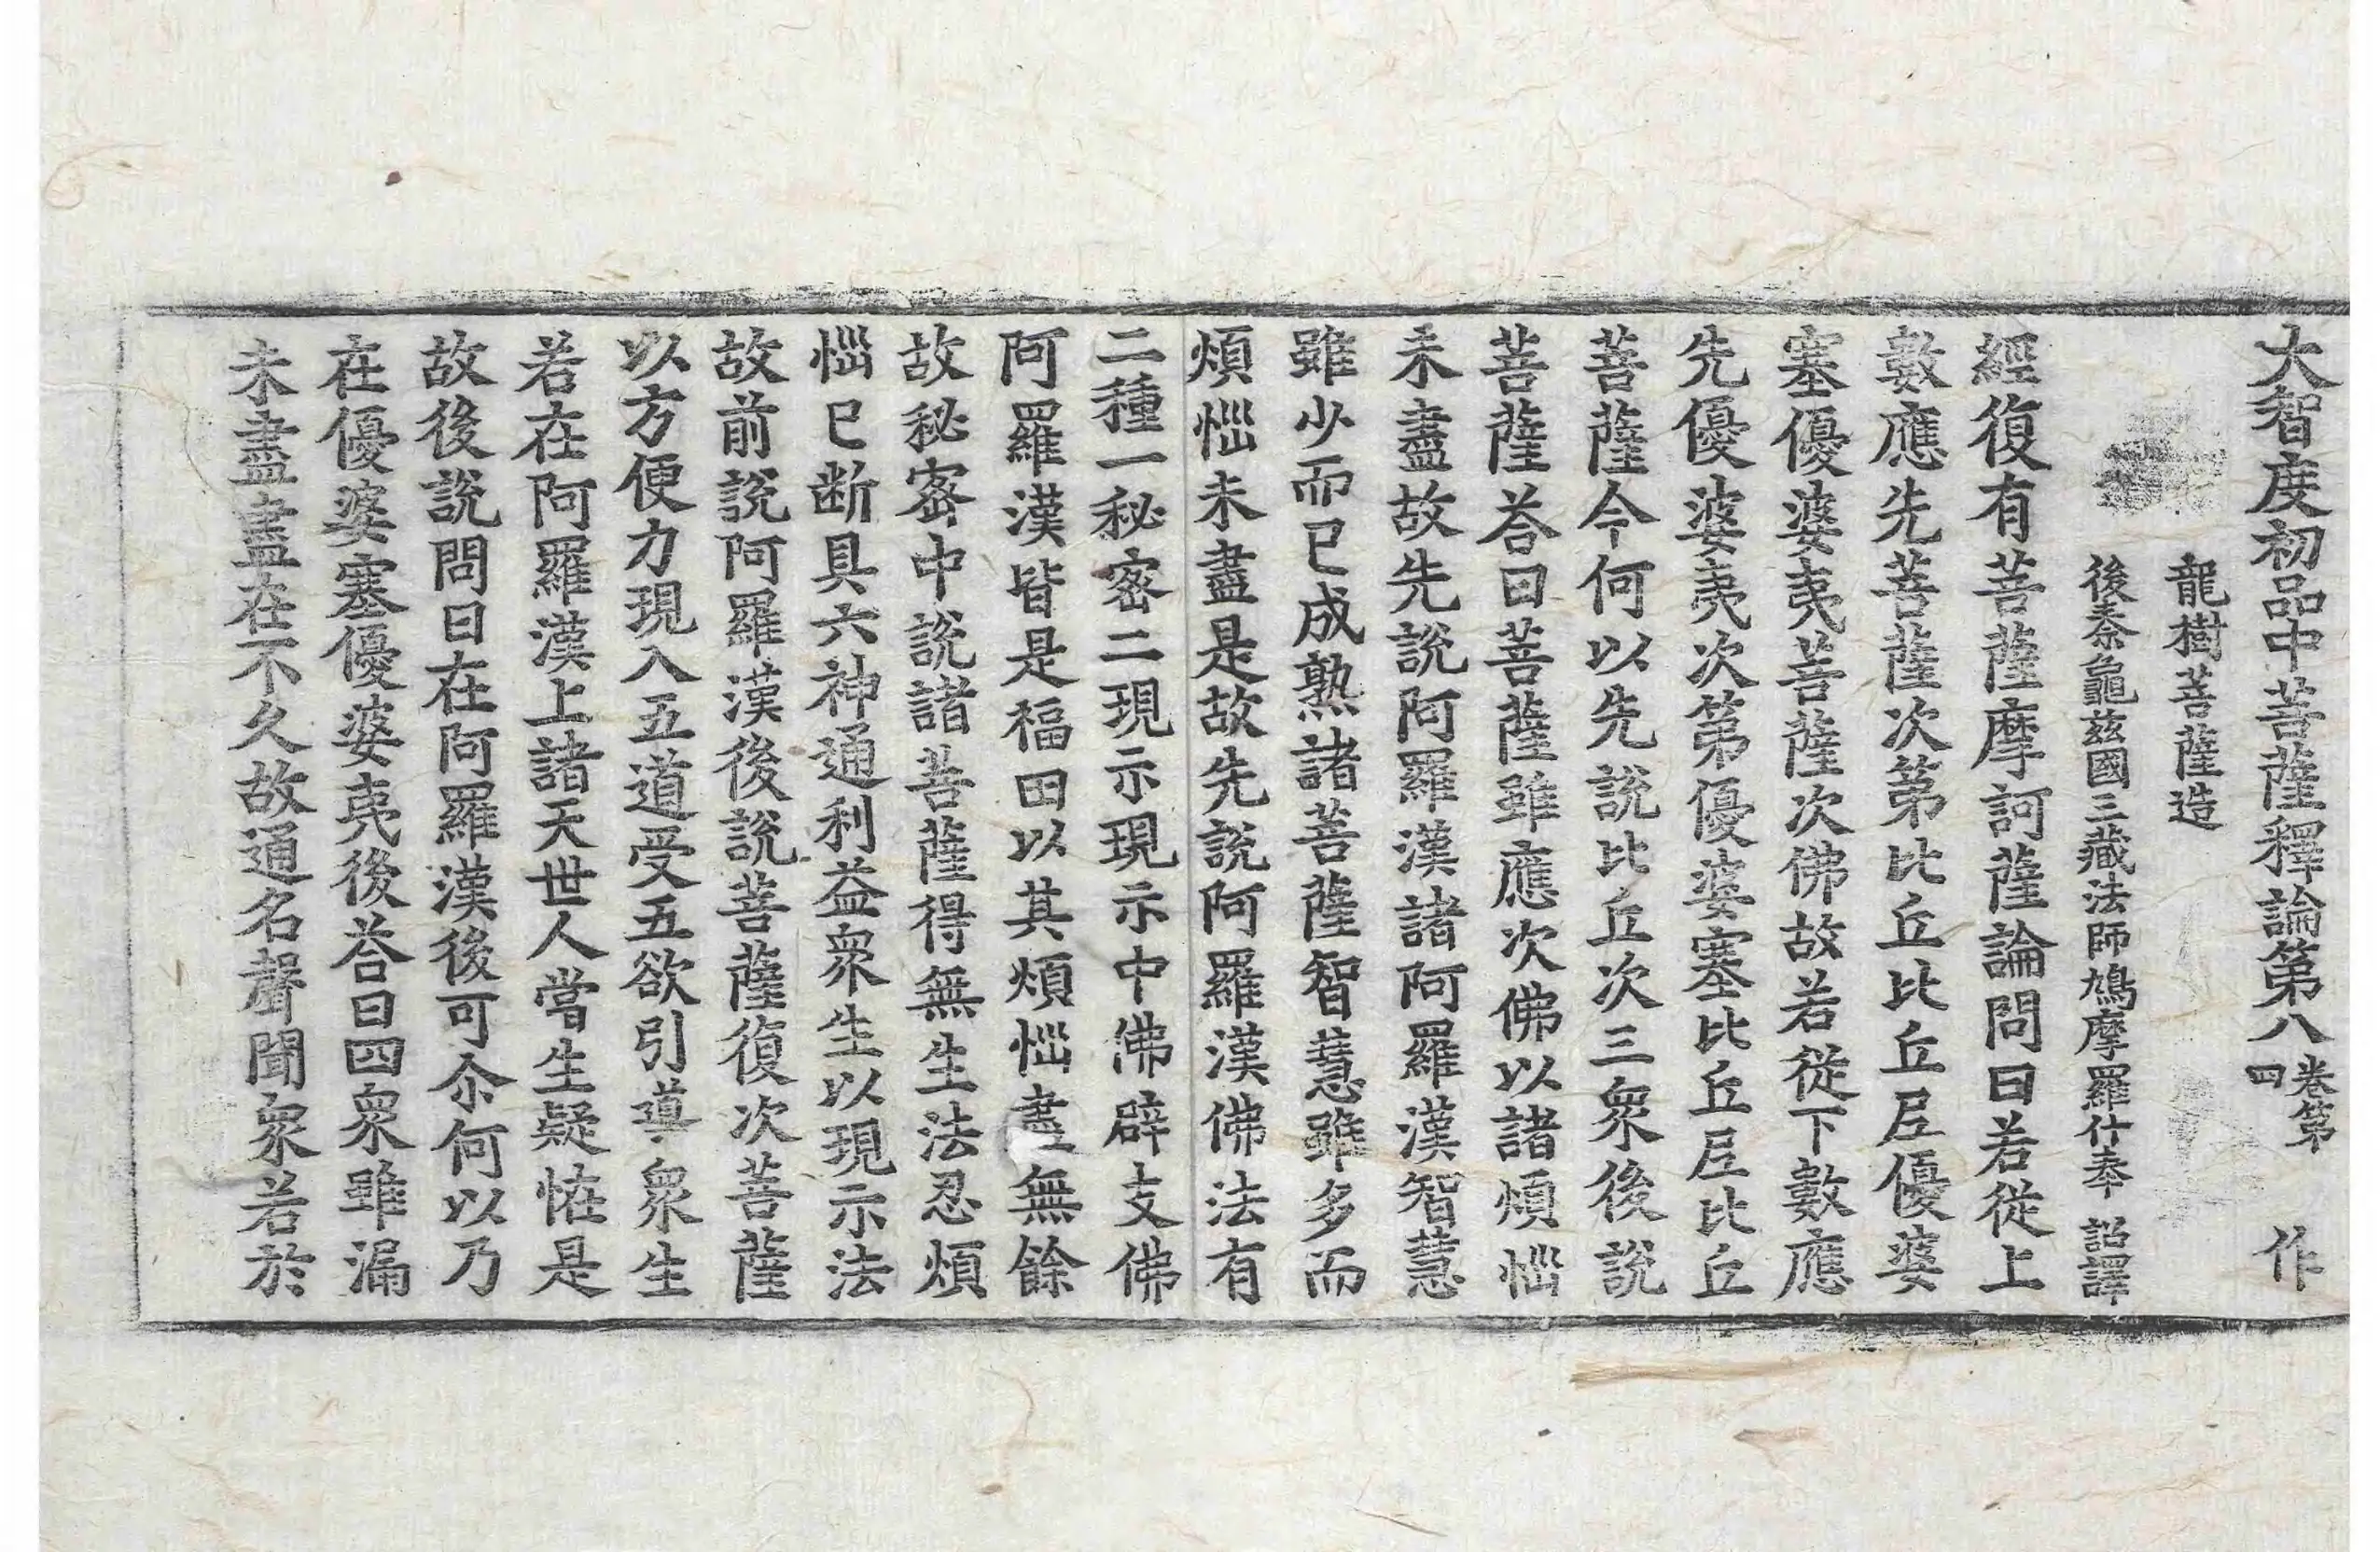 大智度初品中菩薩釋論第八 卷第四 作
龍樹菩薩造
後秦龜茲國三藏法師鳩摩羅什奉 詔譯
經復有菩薩摩訶薩論問曰若從上
數應先菩薩次第比丘比丘尼優婆
塞優婆夷菩薩次佛故若從下數應
先優婆夷次第優婆塞比丘尼比丘
菩薩今何以先說比丘次三衆後說
菩薩荅曰菩薩雖應次佛以諸煩惱
未盡故先說阿羅漢諸阿羅漢智慧
雖少而已成熟諸菩薩智慧雖多而
煩惱未盡是故先說阿羅漢佛法有
二種一秘密二現示現示中佛辟支佛
阿羅漢皆是福田以其煩惱盡無餘
故秘密中說諸菩薩得無生法忍煩
惱已断具六神通利益衆生以現示法
故前說阿羅漢後說菩薩復次菩薩
以方便力現入五道受五欲引導衆生
若在阿羅漢上諸天世人當生疑恠是
故後說問曰在阿羅漢後可尒何以乃
在優婆塞優婆夷後荅曰四衆雖漏
未盡盡在不久故通名聲聞衆若於